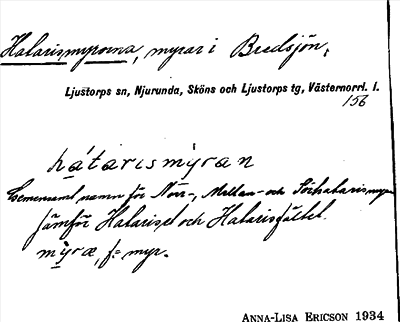 Hatarismyrorna, myrar i Bredsjön,
Ljustorps sn, Njurunda, Sköns och Ljustorps tg, Västernorrl. l.
156
hátarismỳran
Gemensamt namn för Norr-, Mellan- och Sörhatarismyran
Jämför Hatariset och Hatarisfältet.
mỳræ, f = myr.
ANNA-LISA ERICSON 1934